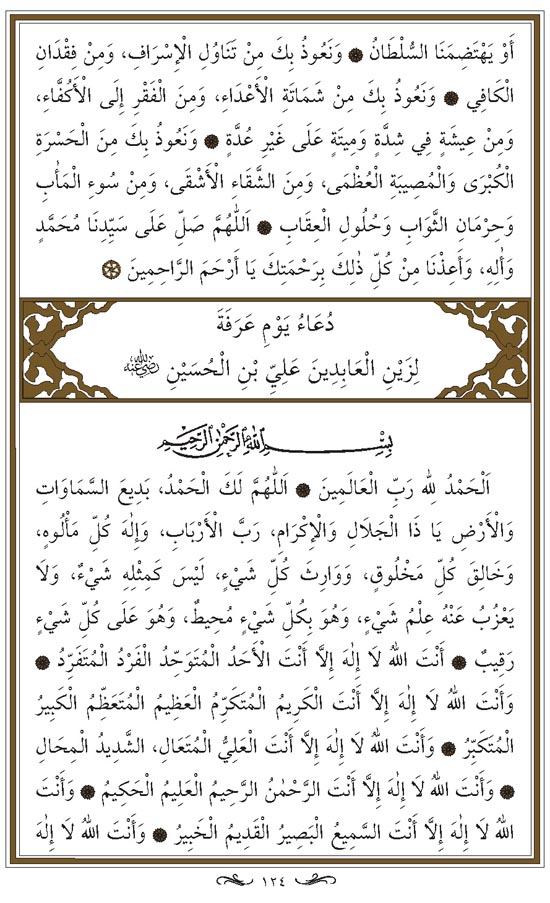 أَوْ يَهْتَضِمَنَا السُّلْطَانُ ۞ وَنَعُوذُ بِكَ مِنْ تَنَاوُلِ الْإِسْرَافِ، وَمِنْ فِقْدَانِ
الْكَافِي ۞ وَنَعُوذُ بِكَ مِنْ شَمَاتَةِ الْأَعْدَاءِ، وَمِنَ الْفَقْرِ إِلَى الْأَكْفَّاءِ،
وَمِنْ عِيشَةٍ فِي شِدَّةٍ وَمِيتَةٍ عَلَى غَيْرِ عُدَّةٍ ۞ وَنَعُوذُ بِكَ مِنَ الْحَسْرَةِ
الْكُبْرَى وَالْمُصِيبَةِ الْعُظْمَى، وَمِنَ الشَّقَاءِ الْأَشْقَى، وَمِنْ سُوءِ الْمَاٰبِ
وَحِرْمَانِ الثَّوَابِ وَحُلُولِ الْعِقَابِ ۞ اَللّٰهُمَّ صَلِّ عَلَى سَيِّدِنَا مُحَمَّدٍ
وَاٰلِهِ، وَأَعِذْنَا مِنْ كُلِّ ذٰلِكَ بِرَحْمَتِكَ يَا أَرْحَمَ الرَّاحِمِينَ ۞
دُعَاءُ يَوْمِ عَرَفَةَ
لِزَيْنِ الْعَابِدِينَ عَلِيِّ بْنِ الْحُسَيْنِ رضي الله عنه
بِسْمِ اللهِ الرَّحْمٰنِ الرَّحِيمِ
اَلْحَمْدُ لِلهِ رَبِّ الْعَالَمِينَ ۞ اَللّٰهُمَّ لَكَ الْحَمْدُ، بَدِيعَ السَّمَاوَاتِ
وَالْأَرْضِ يَا ذَا الْجَلَالِ وَالْإِكْرَامِ، رَبَّ الْأَرْبَابِ، وَإِلٰهَ كُلِّ مَأْلُوهٍ،
وَخَالِقَ كُلِّ مَخْلُوقٍ، وَوَارِثَ كُلِّ شَيْءٍ، لَيْسَ كَمِثْلِهِ شَيْءٌ، وَلَا
يَعْزُبُ عَنْهُ عِلْمُ شَيْءٍ، وَهُوَ بِكُلِّ شَيْءٍ مُحِيطٌ، وَهُوَ عَلَى كُلِّ شَيْءٍ
رَقِيبٌ ۞ أَنْتَ اللهُ لَا إِلٰهَ إِلَّا أَنْتَ الْأَحَدُ الْمُتَوَحِّدُ الْفَرْدُ الْمُتَفَرِّدُ ۞
وَأَنْتَ اللهُ لَا إِلٰهَ إِلَّا أَنْتَ الْكَرِيمُ الْمُتَكَرِّمُ الْعَظِيمُ الْمُتَعَظِّمُ الْكَبِيرُ
الْمُتَكَبِّرُ ۞ وَأَنْتَ اللهُ لَا إِلٰهَ إِلَّا أَنْتَ الْعَلِيُّ الْمُتَعَالِ، الشَّدِيدُ الْمِحَالِ
۞ وَأَنْتَ اللهُ لَا إِلٰهَ إِلَّا أَنْتَ الرَّحْمٰنُ الرَّحِيمُ الْعَلِيمُ الْحَكِيمُ ۞ وَأَنْتَ
اللهُ لَا إِلٰهَ إِلَّا أَنْتَ السَّمِيعُ الْبَصِيرُ الْقَدِيمُ الْخَبِيرُ ۞ وَأَنْتَ اللهُ لَا إِلٰهَ
١٢٤